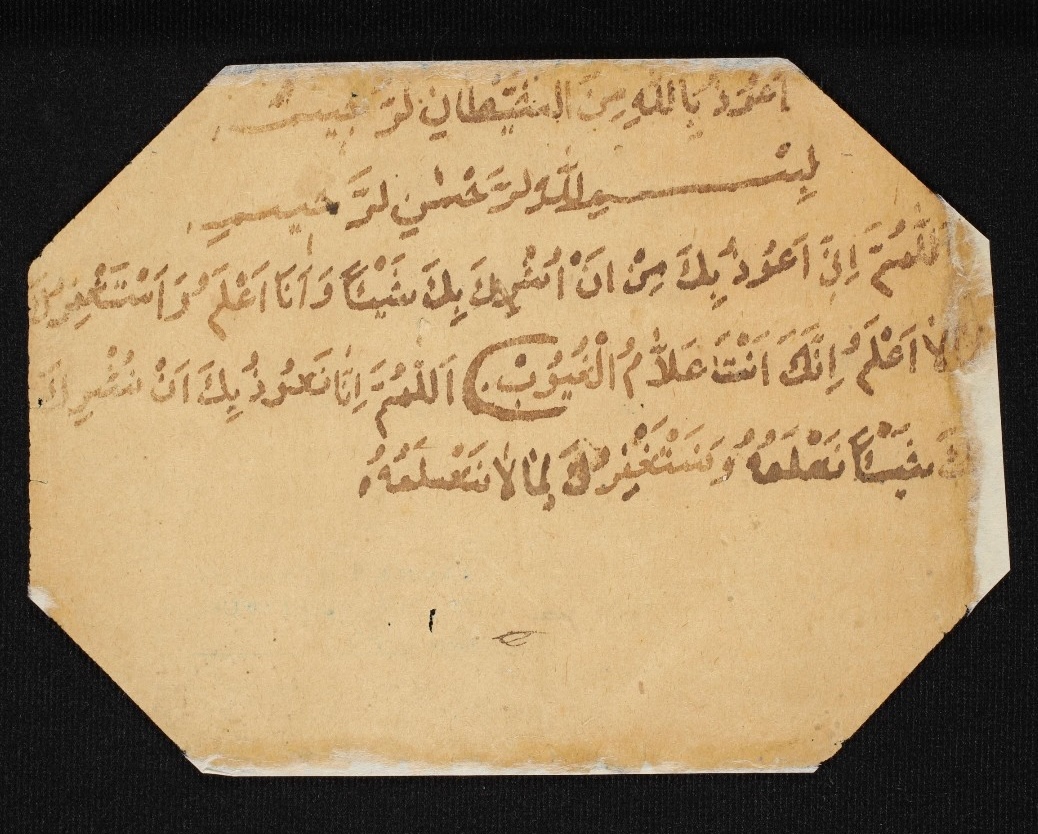 اَعُوذُ بِاللهِ مِنَ الشَّيْطَانِ لرَّجِيمِ
بِسْمِ اللهِ لرَّحْمٰنِ لرَّحِيمِ
اَللّٰهُمَّ اِنِّى اَعُوذُ بِكَ مِنْ اَنْ اُشْرِكَ بِكَ شَيْئاً وَاَنَا اَعْلَمُ وَاَسْتَغْفِرُكَ
لاٰ اَعْلَمُ اِنَّكَ اَنْتَ عَلاَّمُ الْغُيُوبْ اَللّٰهُمَّ اِنَّا نَعُوذُ بِكَ اَنْ نُشْرِكَ
بِكَ شَيْئاً نَعْلَمُهُ وَنَسْتَغْفِرُكَ لِمَا لاٰ نَعْلَمُهُ